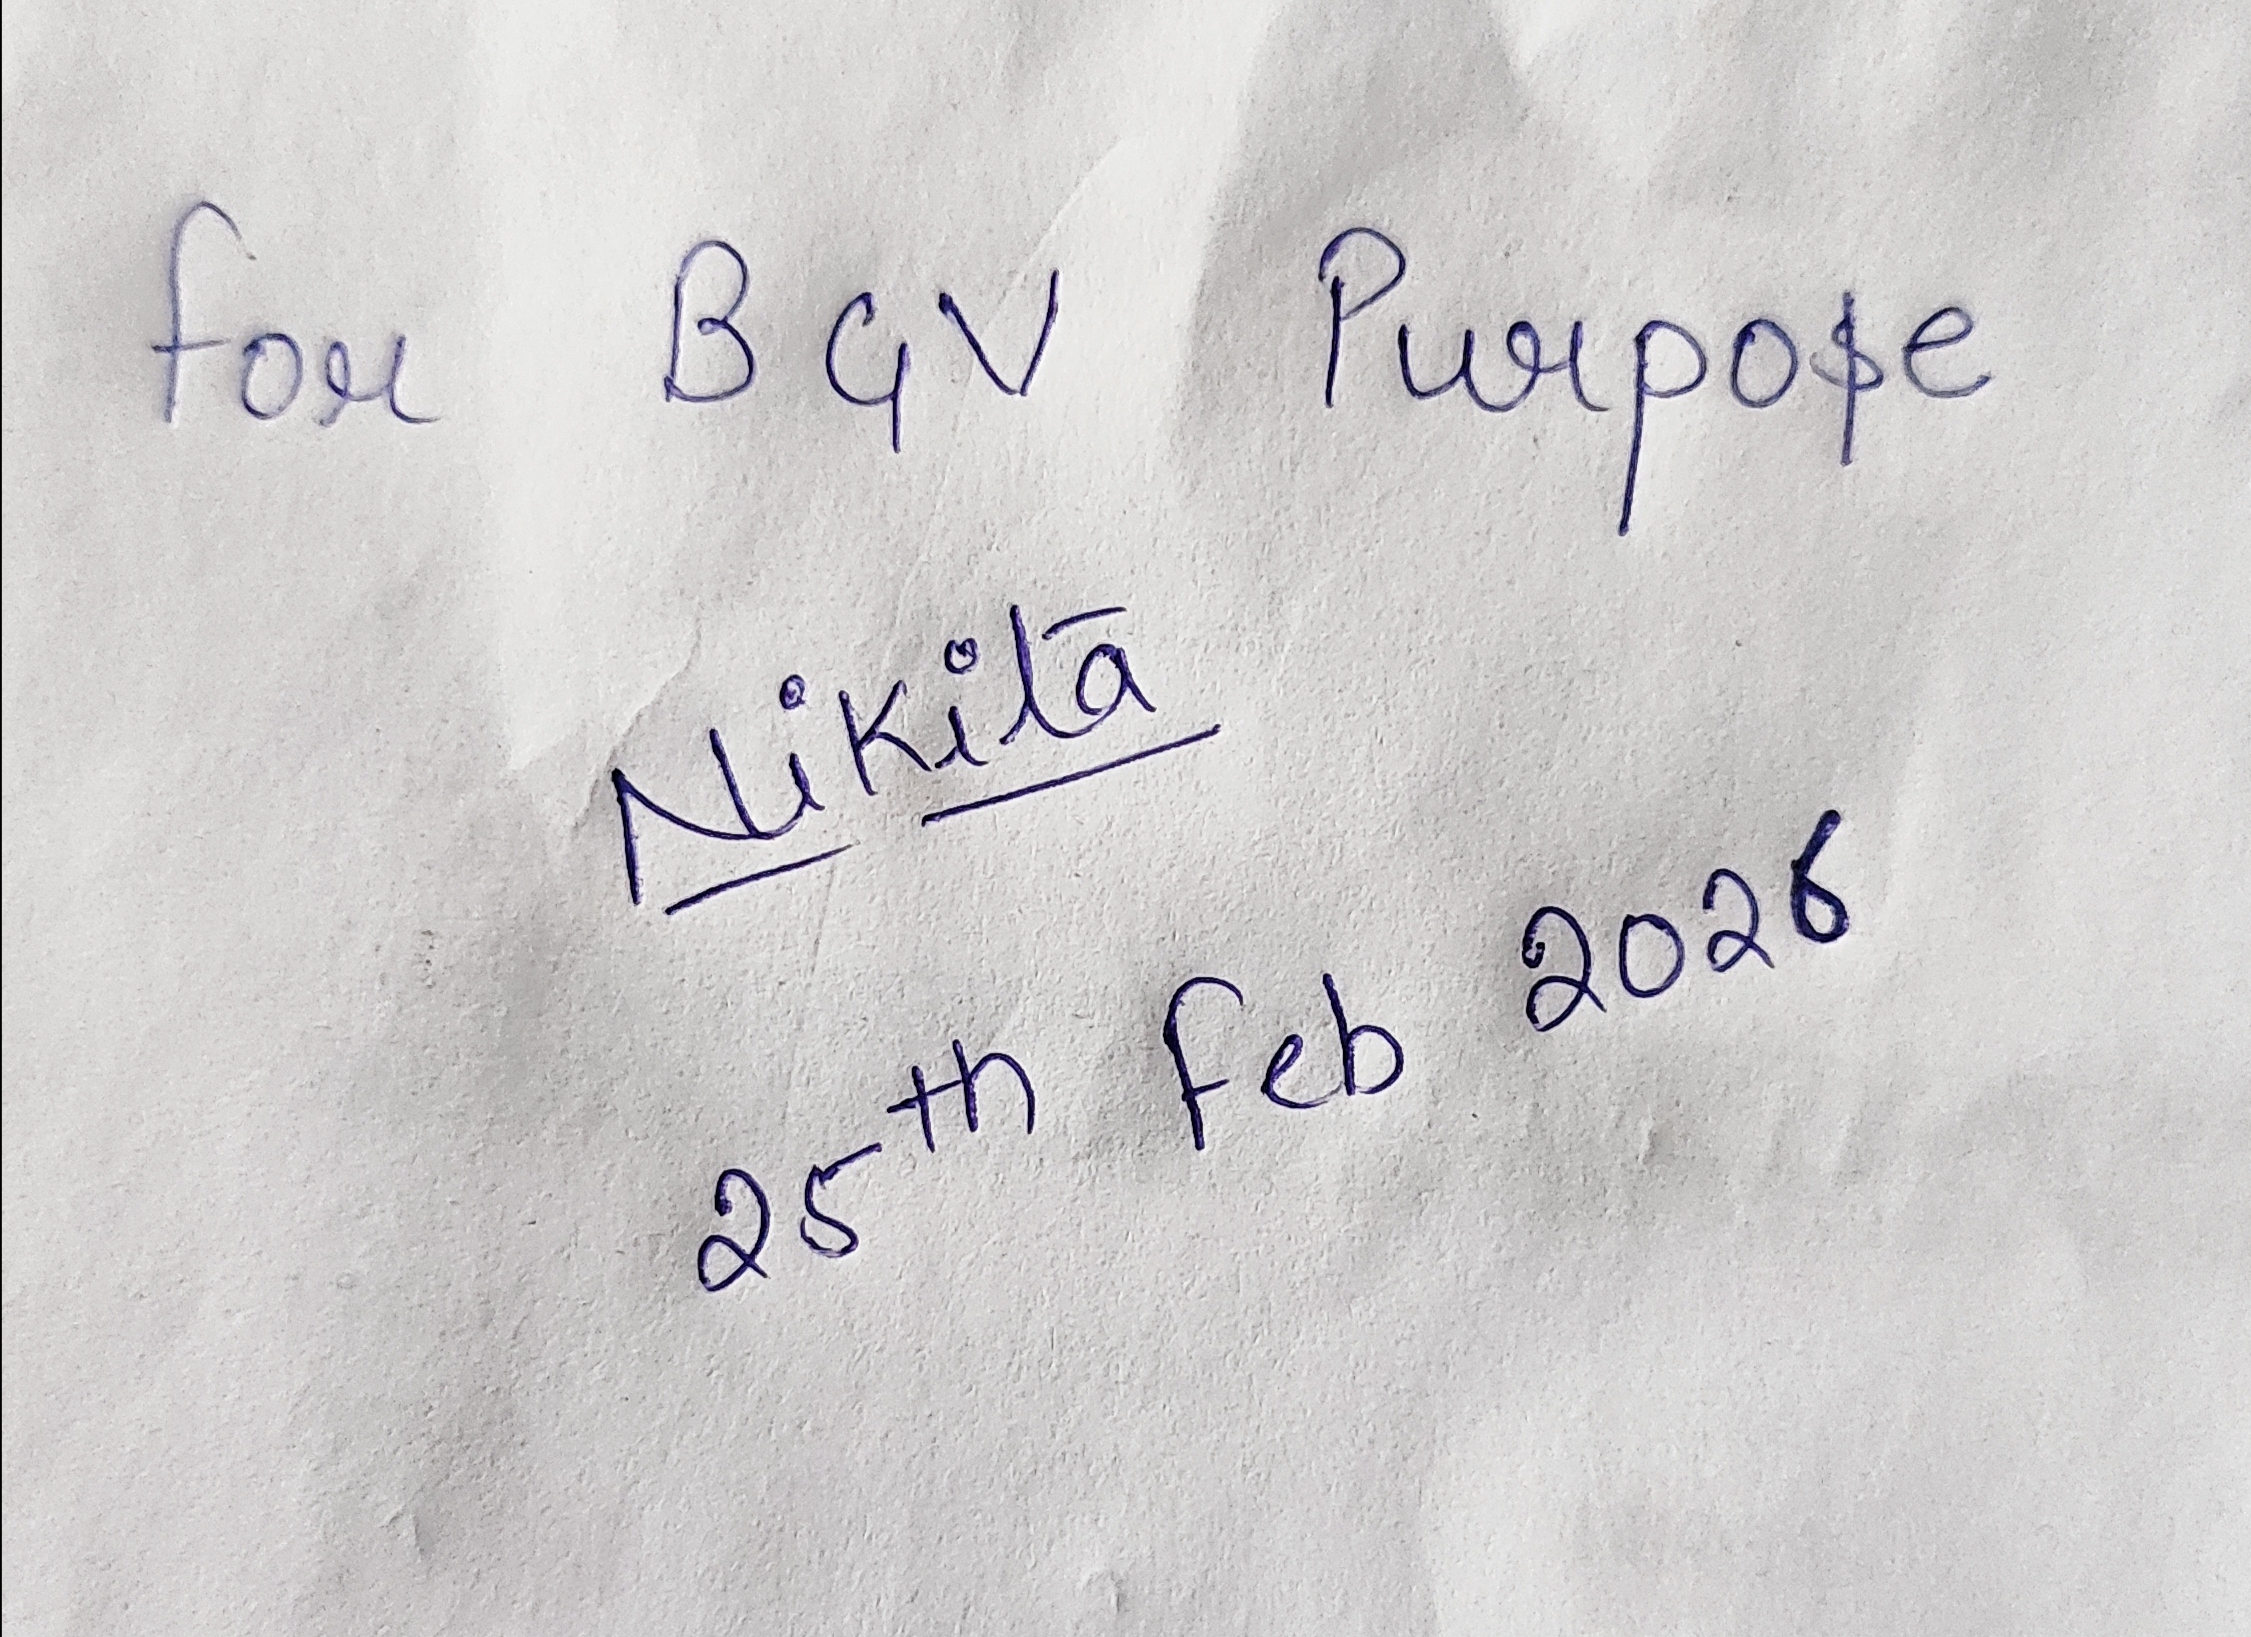 For BGV Purpose
Nikita
25th Feb 2026